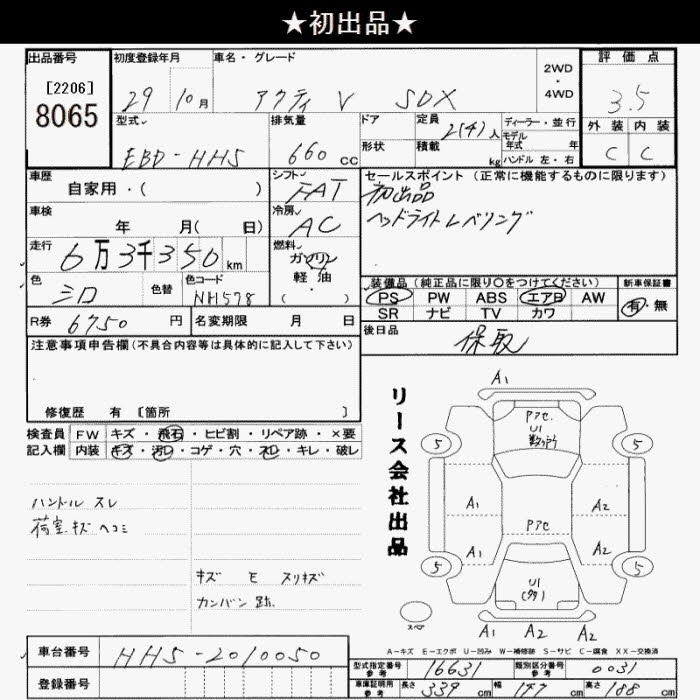 ★初出品★
出品番号
[2206]
8065
初度登録年月
29 10月
車名・グレード
アクティ V SDX
2WD
・
4WD
評価点
3.5
外装 内装
C C
型式
EBD-HH5
排気量
660 cc
ドア
形状
定員
2(4)人
積載
kg
ディーラー・並行
モデル
年式 年
ハンドル 左・右
車歴
自家用・( )
シフト
FAT
セールスポイント (正常に機能するものに限ります)
初出品
ヘッドライトレベリング
車検
年 月( 日)
冷房
AC
走行
6万3千350km
燃料
ガソリン
軽油
( ・ )
色
シロ
色替
色コード
NH578
装備品(純正品に限り○をつけてください)
PS PW ABS エアB AW
SR ナビ TV カワ
新車保証書
有・無
R券 6750 円
名変期限 月 日
後日品
保取
注意事項申告欄(不具合内容等は具体的に記入して下さい)
修復歴 有 [箇所 ]
検査員
記入欄
FW キズ・飛石・ヒビ割・リペア跡・×要
内装 キズ・汚レ・コゲ・穴・スレ・キレ・破レ
ハンドル スレ
荷室キズ ヘコミ
キズ E スリキズ
カンバン跡
リース会社出品
A1
P7C.
U1
5 5
A1 A2
P7C
A1 A2
5 5
U1
スペア
A1 A2 A2
A-キズ E-エクボ U-凹み W-補修跡 S-サビ C-腐食 XX-交換済
車台番号 HH5-2010050
登録番号
型式指定番号
参考
16631
類別区分番号
参考
0031
車庫証明用
参考
長さ 339 cm 幅 147 cm 高さ 188 cm